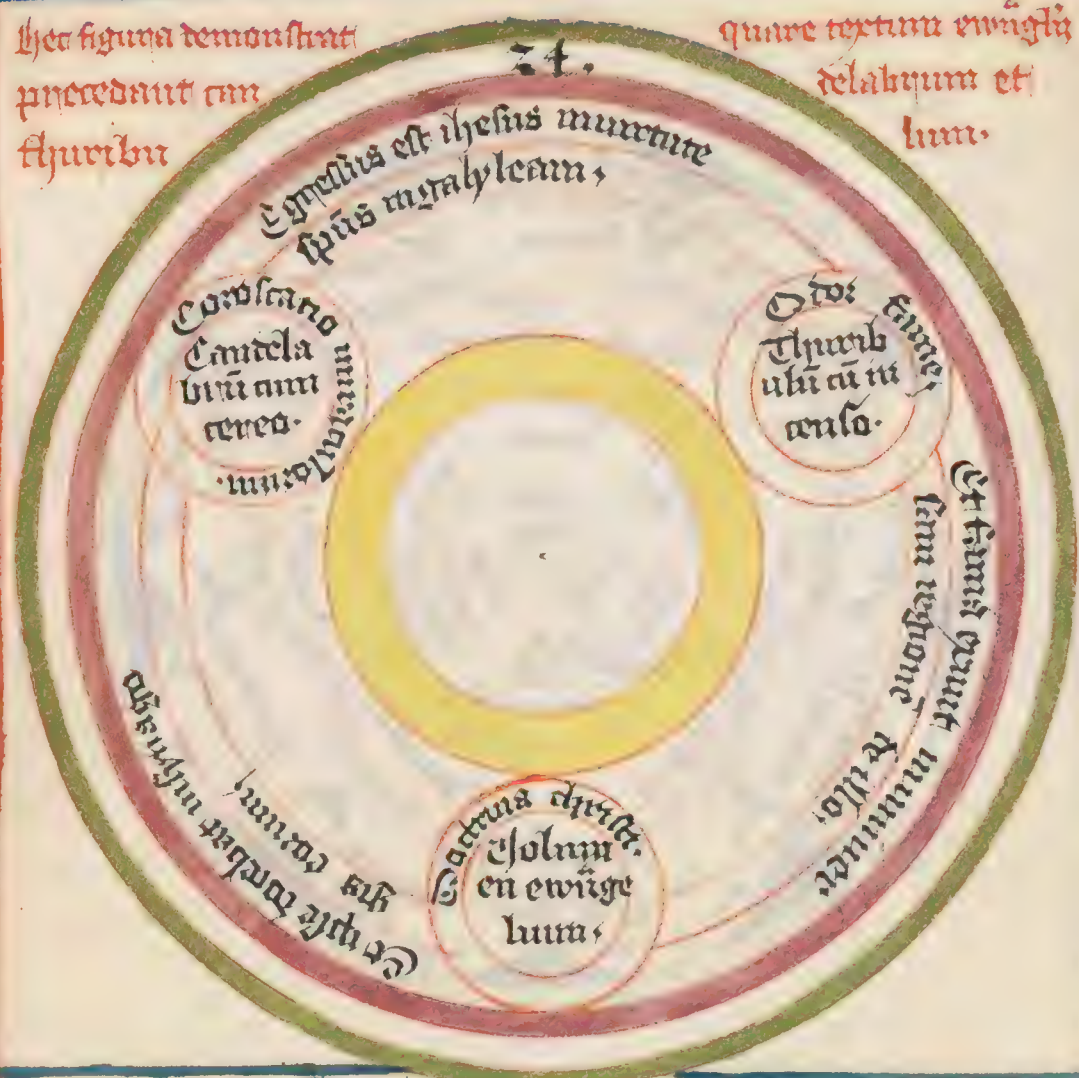 Hec figura demonstrat
quare textum ewūgely
precedant can
delabrum et
thuribu
lum.
24.
Egressus est ihesus in uirtute
spūs in galyleam,
Coroscatio miraculorum.
Candela
brū cum
cereo.
Odor fame,
Thurib
ulū cū in
censo.
Et fama exiuit in uniuer
sam regione de illo.
Doctrina christi.
Volum
en ewūge
lium,
Et ipse docebat in synago
gis eorum,